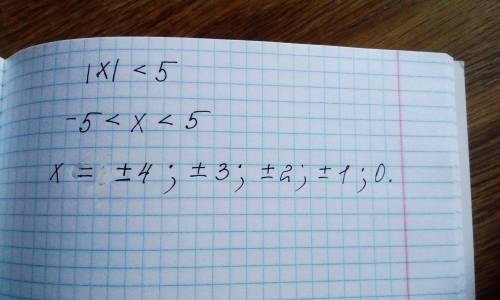 |x| < 5
-5 < x < 5
x = ±4; ±3; ±2; ±1; 0.